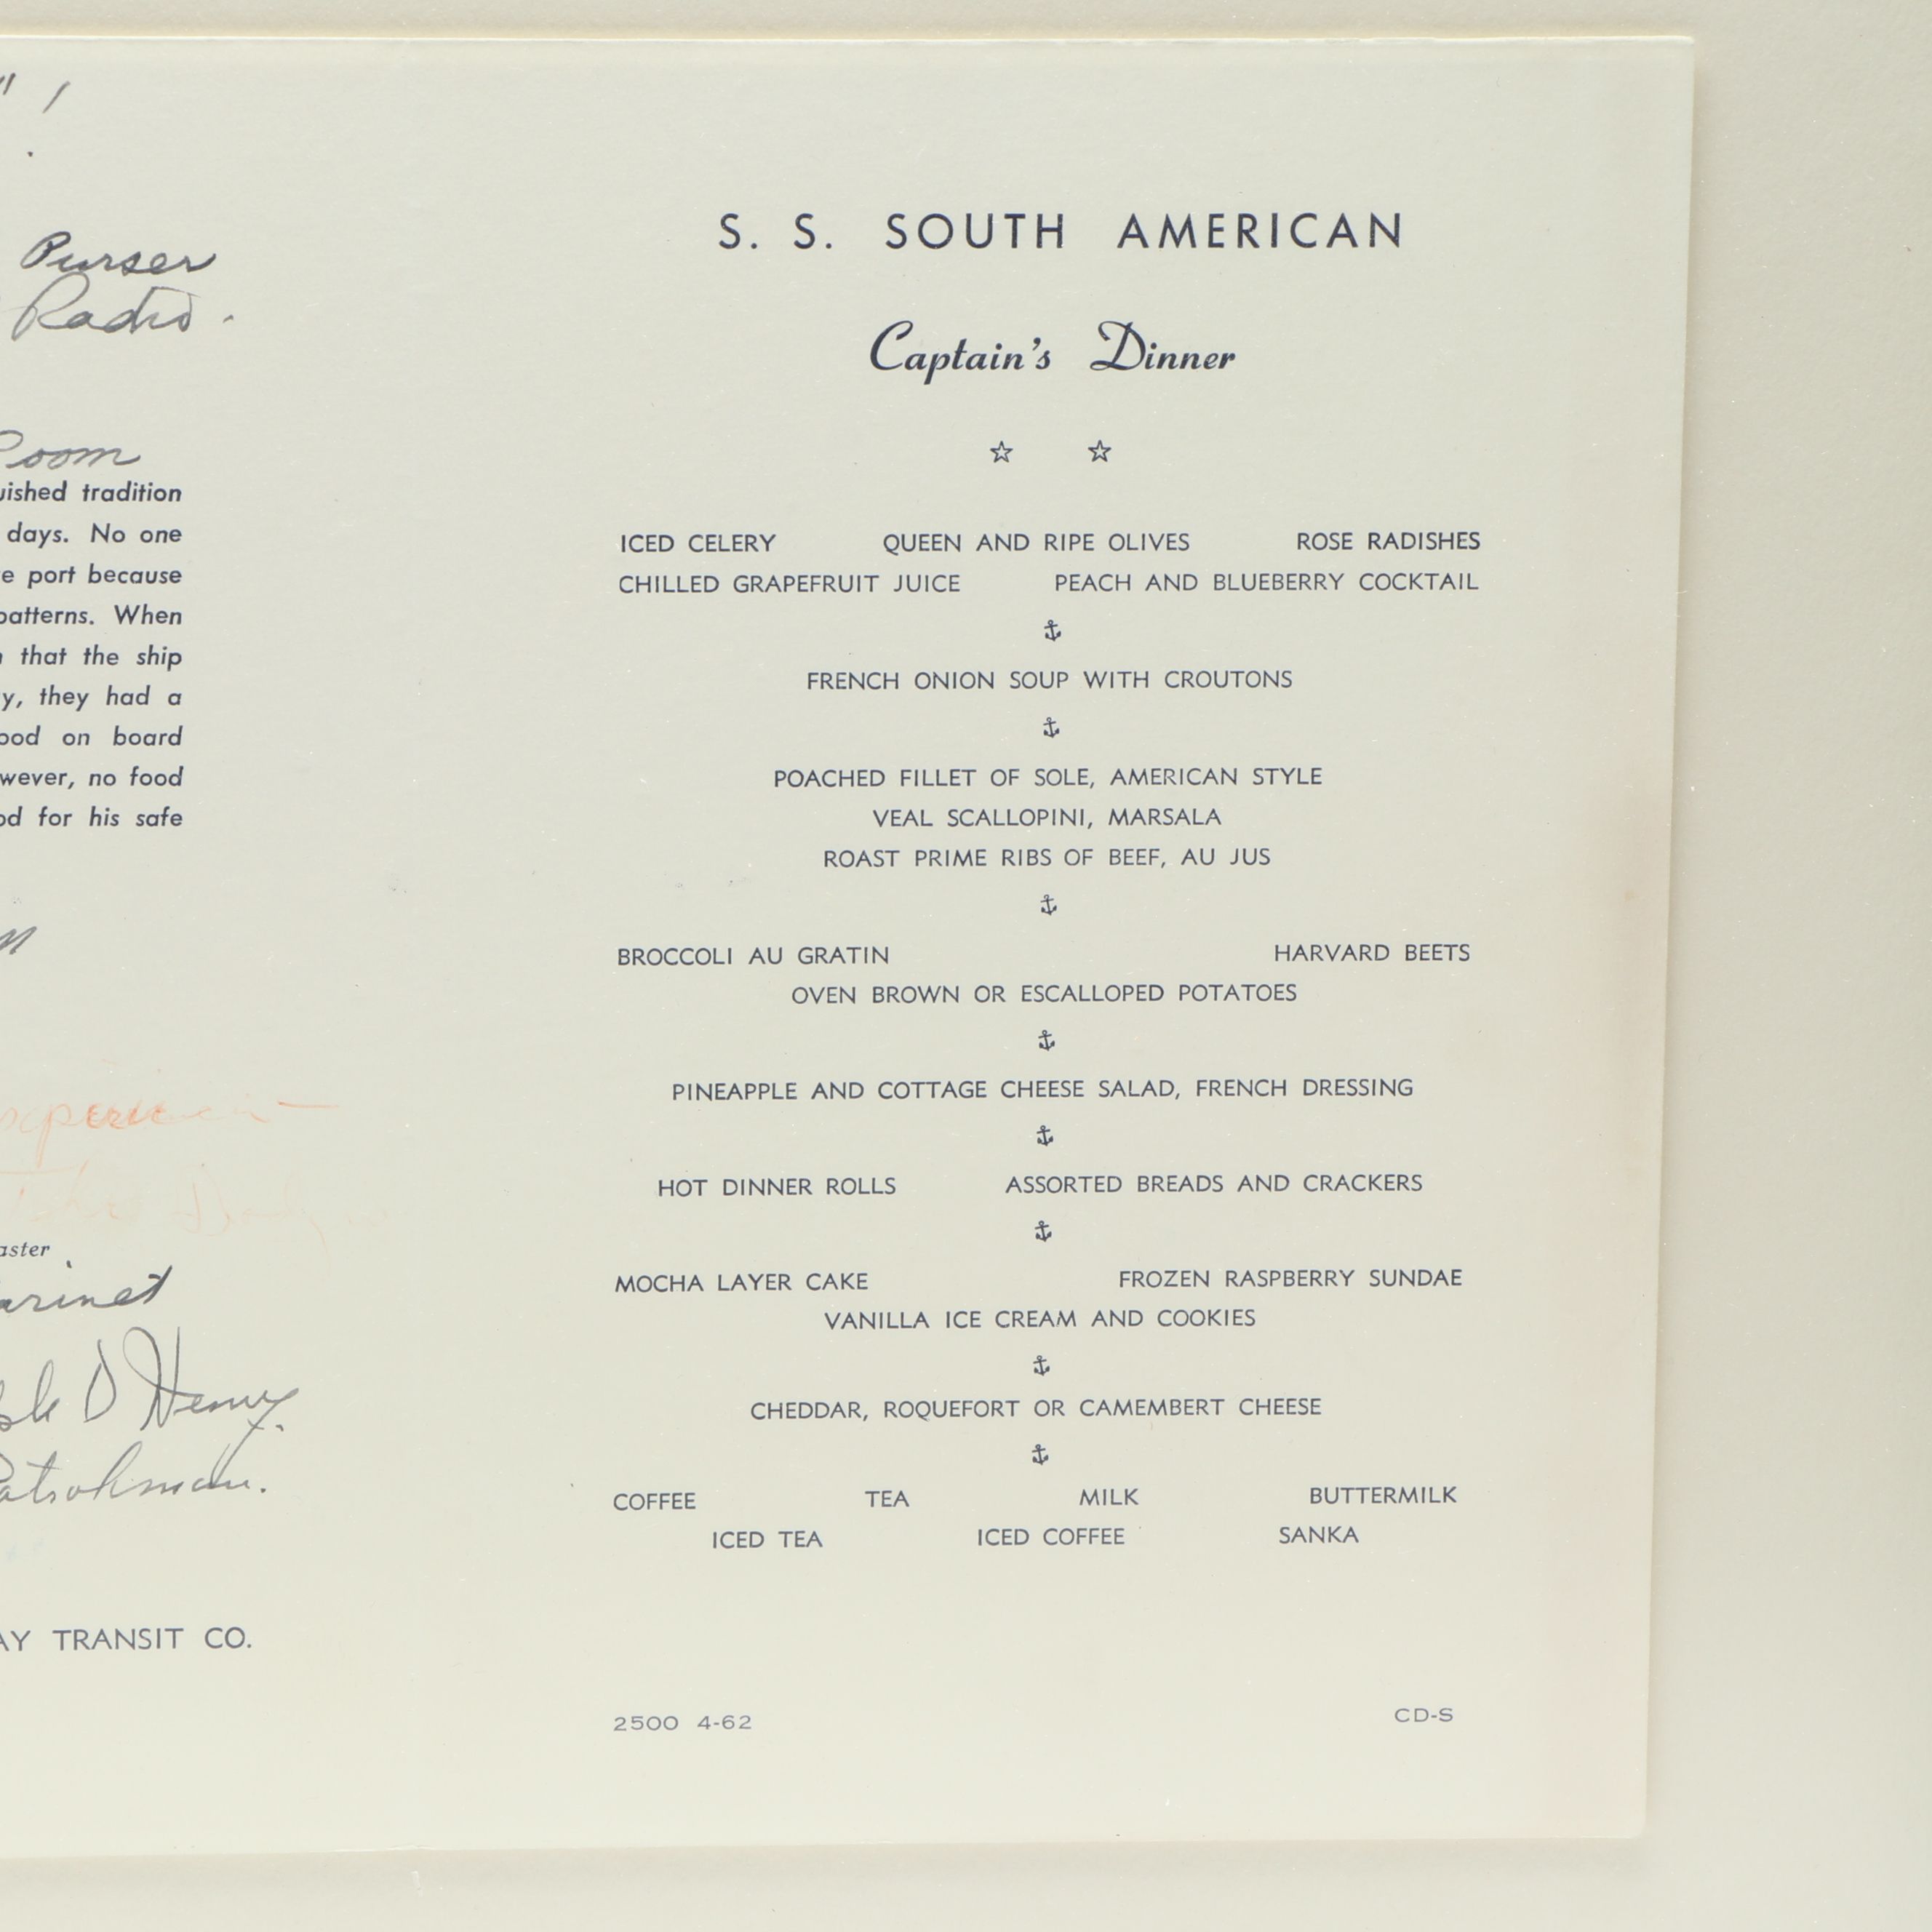 Purser
Radio.
Room
tradition
days. No one
port because
patterns. When
that the ship
they had a
on board
no food
for his safe
D Henry.
Patrolman.
TRANSIT CO.
S. S. SOUTH AMERICAN
Captain's Dinner
ICED CELERY QUEEN AND RIPE OLIVES ROSE RADISHES
CHILLED GRAPEFRUIT JUICE PEACH AND BLUEBERRY COCKTAIL
FRENCH ONION SOUP WITH CROUTONS
POACHED FILLET OF SOLE, AMERICAN STYLE
VEAL SCALLOPINI, MARSALA
ROAST PRIME RIBS OF BEEF, AU JUS
BROCCOLI AU GRATIN HARVARD BEETS
OVEN BROWN OR ESCALLOPED POTATOES
PINEAPPLE AND COTTAGE CHEESE SALAD, FRENCH DRESSING
HOT DINNER ROLLS ASSORTED BREADS AND CRACKERS
MOCHA LAYER CAKE FROZEN RASPBERRY SUNDAE
VANILLA ICE CREAM AND COOKIES
CHEDDAR, ROQUEFORT OR CAMEMBERT CHEESE
COFFEE TEA MILK BUTTERMILK
ICED TEA ICED COFFEE SANKA
2500 4-62 CD-S